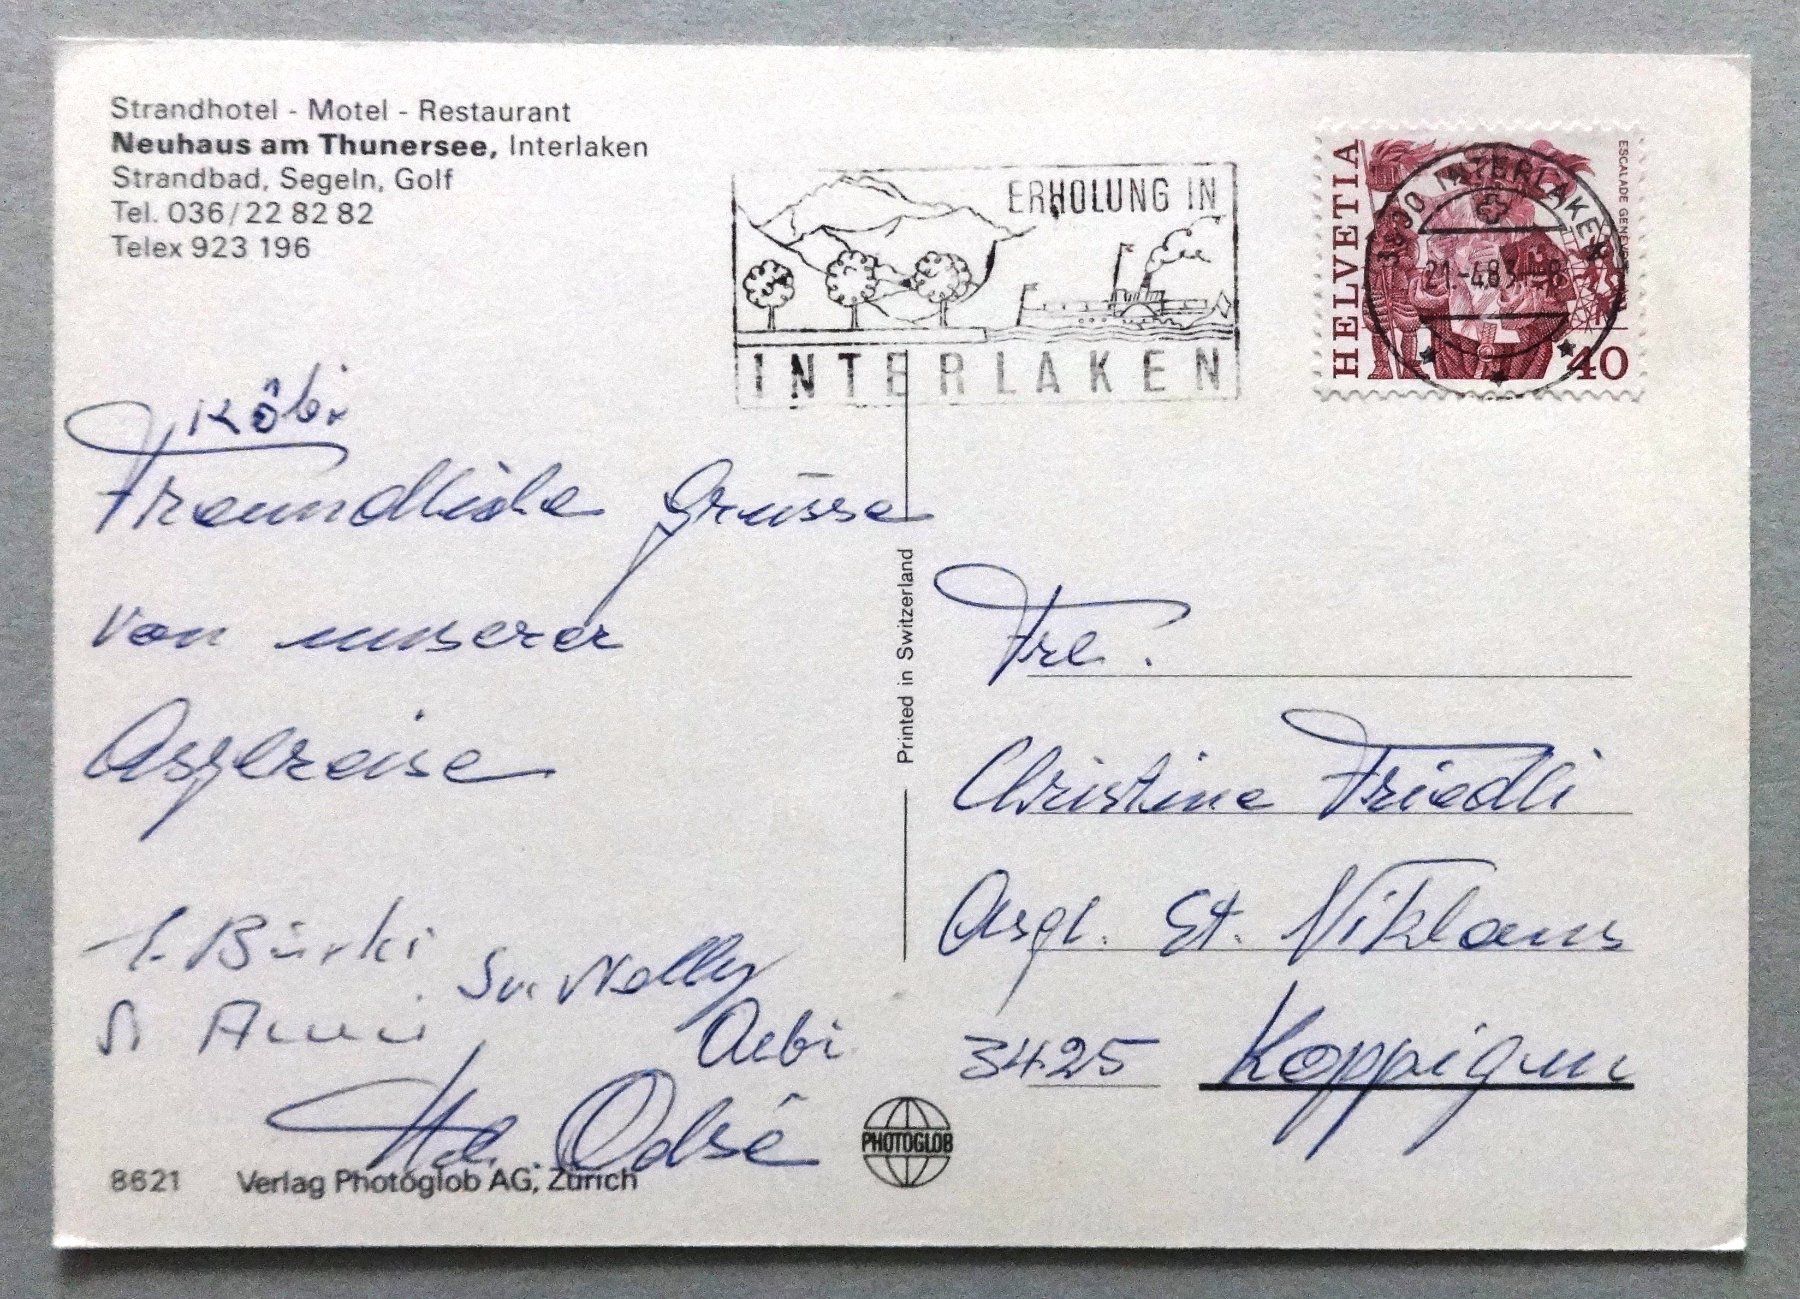 Strandhotel - Motel - Restaurant
Neuhaus am Thunersee, Interlaken
Strandbad, Segeln, Golf
Tel. 036/22 82 82
Telex 923 196
ERHOLUNG IN
INTERLAKEN
HELVETIA
ESCALADE GENEVE
40
3800 INTERLAKEN
21.-4.83.-8
Köbi
Freundliche Grüsse
von unserer
Asylreise
Bürki
Sr. Nelly
Aebi
Printed in Switzerland
Frl.
Christine Friedli
Asyl. St. Niklaus
3425 Koppigen
PHOTOGLOB
8621 Verlag Photoglob AG, Zürich